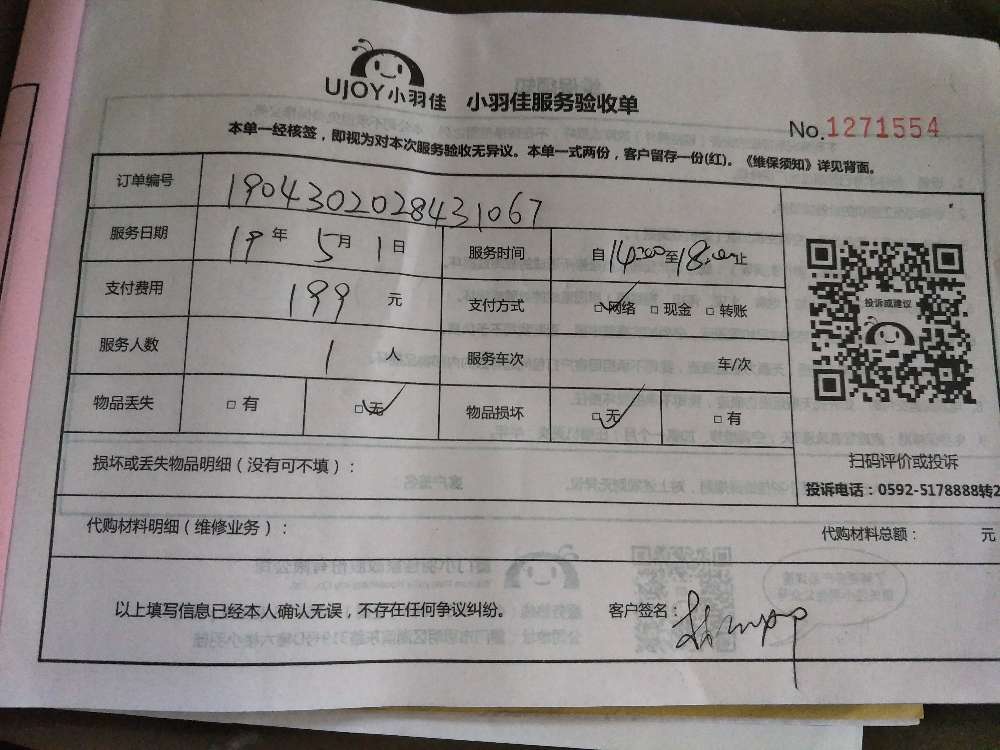 UJOY小羽佳 小羽佳服务验收单
No.1271554
本单一经核签，即视为对本次服务验收无异议。本单一式两份，客户留存一份(红)。《维保须知》详见背面。
订单编号 1904302028431067
服务日期 19年 5月 1日 服务时间 自14:00至18:00止
支付费用 199 元 支付方式 □网络 □现金 □转账
服务人数 1 人 服务车次 车/次
物品丢失 □有 □无 物品损坏 □无 □有
投诉或建议
扫码评价或投诉
投诉电话：0592-5178888转2
损坏或丢失物品明细（没有可不填）：
代购材料明细（维修业务）： 代购材料总额： 元
以上填写信息已经本人确认无误，不存在任何争议纠纷。 客户签名：